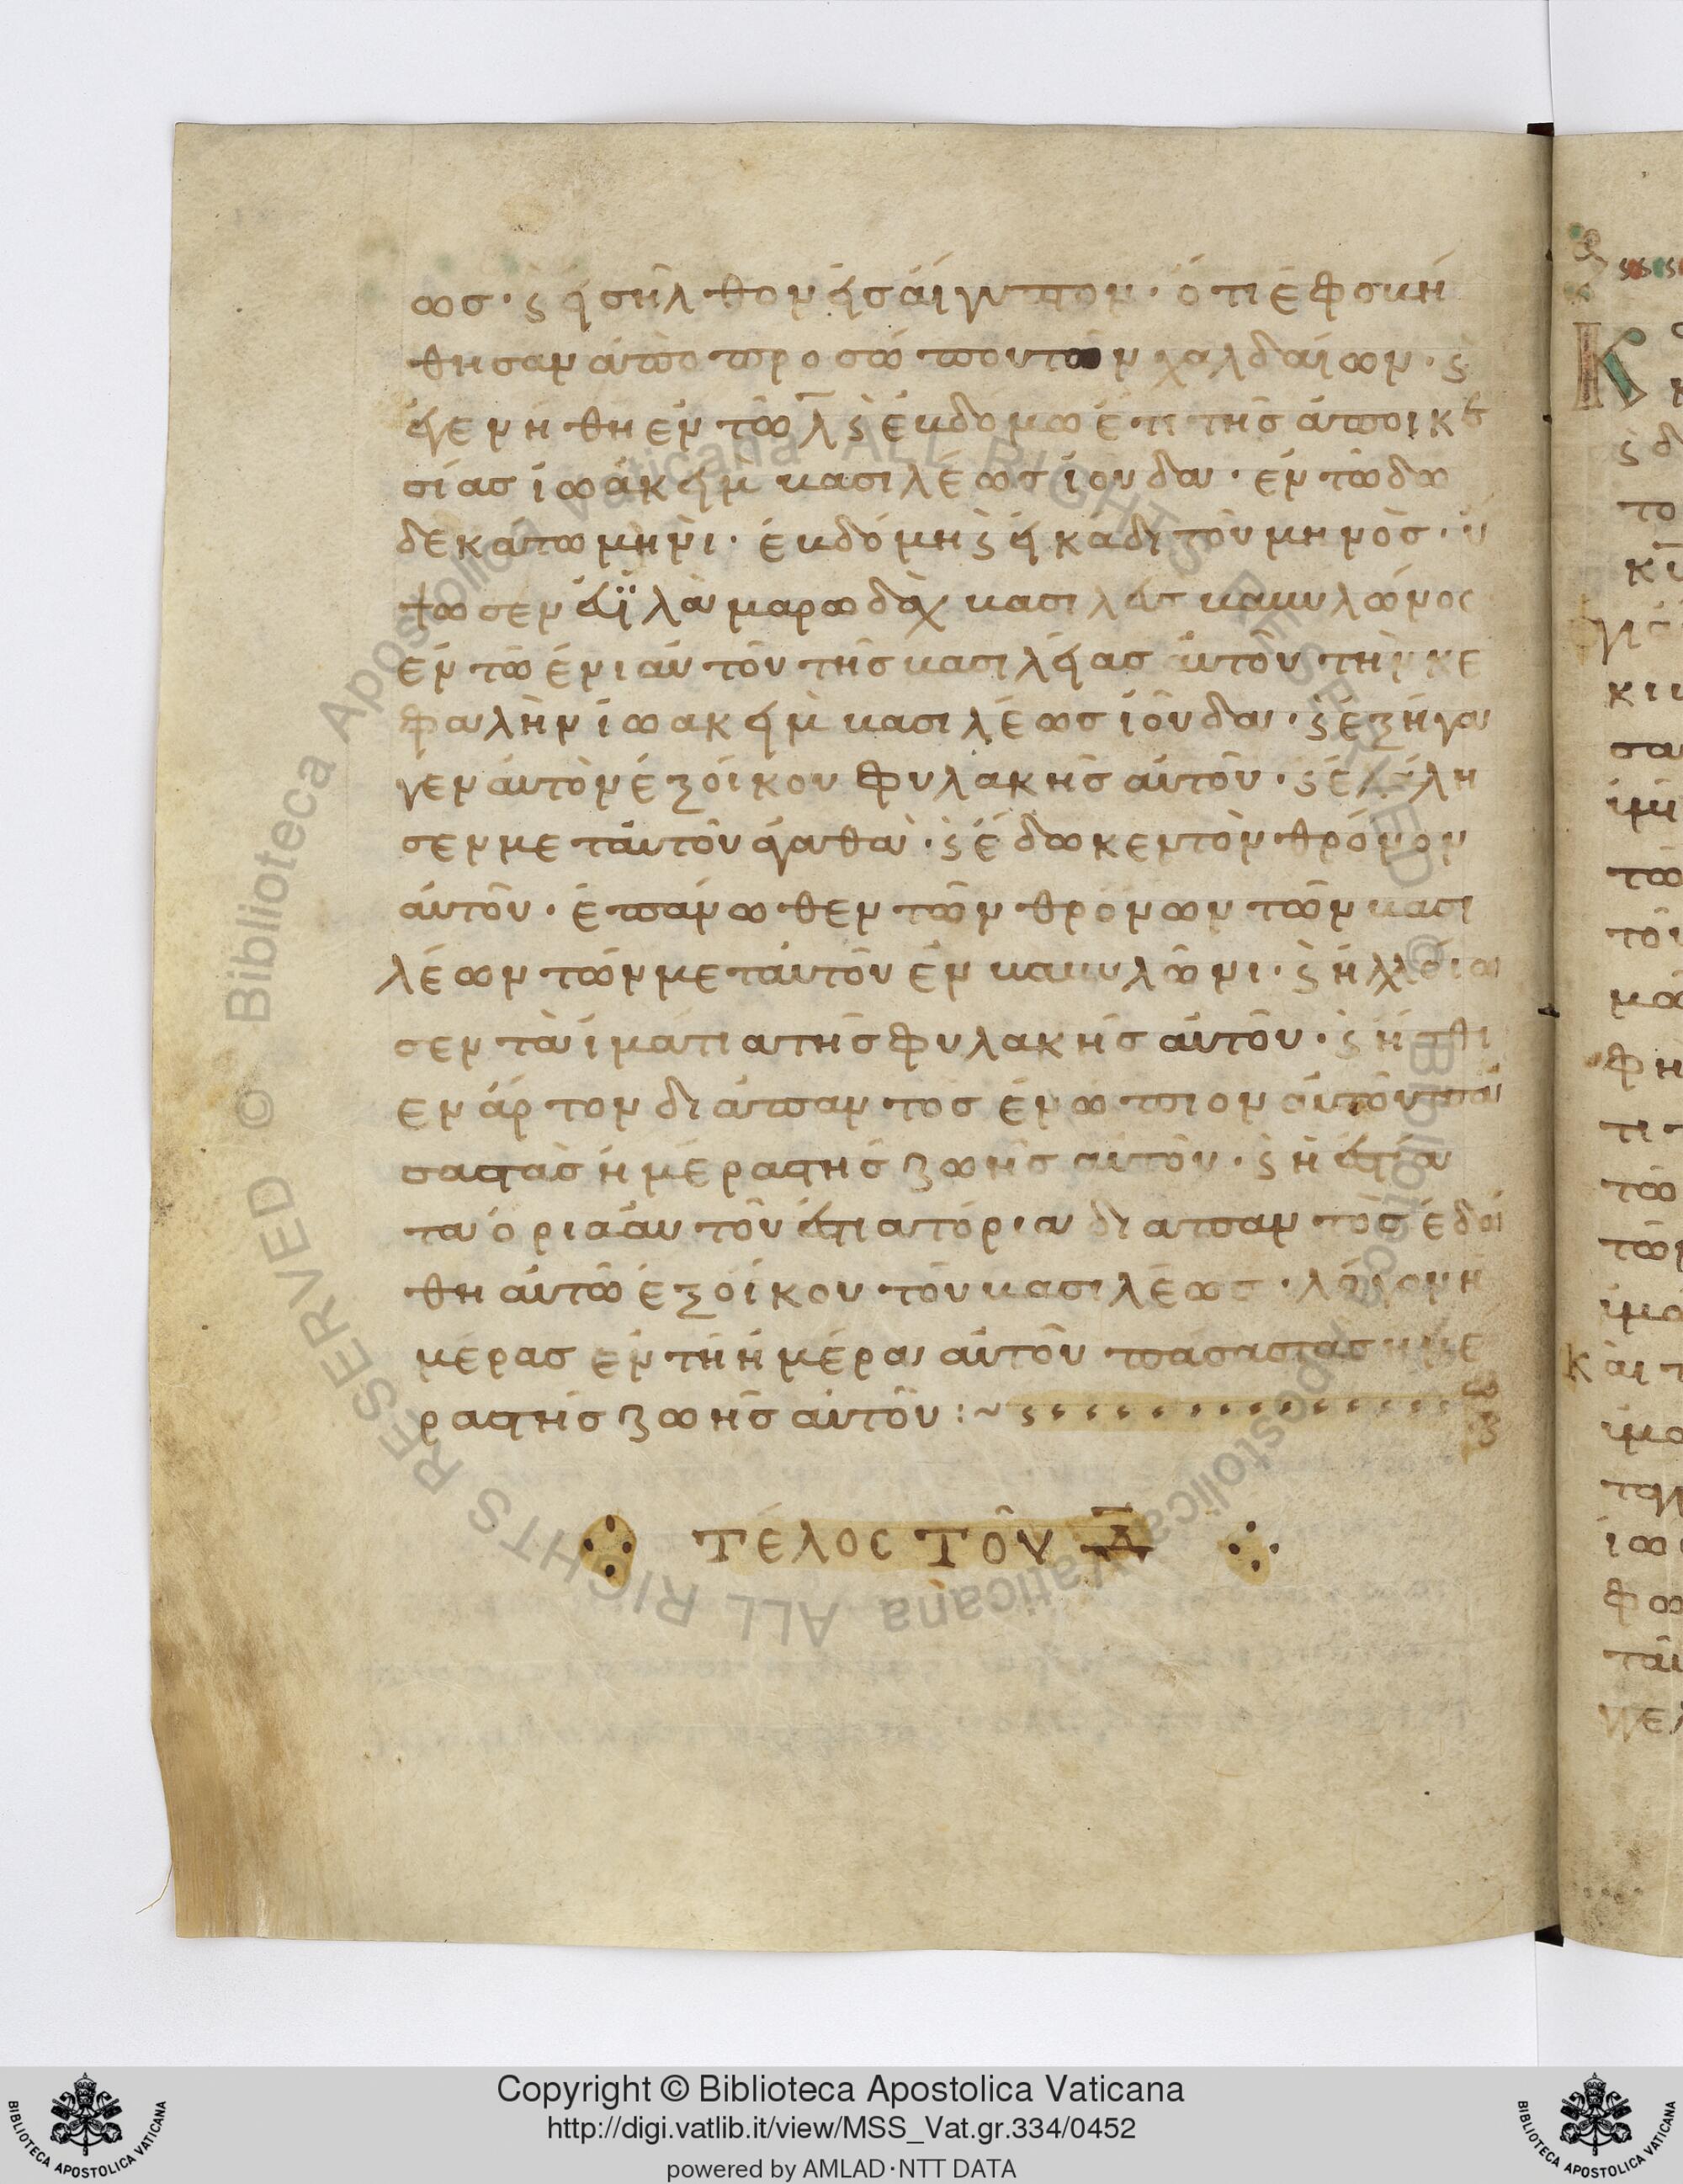 ωσ· ϛ εἰσῆλθον εἰσ ἀίγυπτον· ὅτι ἐφοβή
θησαν ἀπὸ προσώπου τῶν χαλδαίων· ϛ
ἐγενήθη ἐν τῶ λ̅ ϛ ἑβδόμω ἔτει τῆσ ἀποικε
σίασ ἰωάκεὶμ βασιλέωσ ἰούδα· ἐν τῶ δω
δεκάτω μηνὶ· ἑβδόμη ϛ εἰκάδι τοῦ μηνὸσ· ὕ
ψωσεν εὐϊλὰ μαρωδὰχ βασιλεὺσ βαβυλῶνοσ
ἐν τῶ ἐνιαυτοῦ τῆσ βασιλείασ αὐτοῦ τὴν κε
φαλὴν ἰωακεὶμ βασιλέωσ ἰούδα· ϛ ἐξήγα
γεν αὐτὸν ἐξ οἴκου φυλακῆσ αὐτοῦ· ϛ ἐλάλη
σεν μετ αὐτοῦ ἀγαθὰ· ϛ ἔδωκεν τὸν θρόνον
αὐτοῦ· ἐπάνωθεν τῶν θρόνων τῶν βασι
λέων τῶν μετ αὐτοῦ ἐν βαβυλῶνι· ϛ ἠλλοίω
σεν τὰ ἱμάτια τῆσ φυλακῆσ αὐτοῦ· ϛ ἤσθι
εν ἄρτον διάπαντοσ ἐνώπιον αὐτοῦ πά
σασ τὰσ ἡμέρασ τῆσ ζωῆσ αὐτοῦ· ϛ ἡ ἑστία
τα ὅρια αὐτοῦ ἑστιατόρια διαπαντὸσ ἐδό
θη αὐτῶ ἐξ οἴκου τοῦ βασιλέωσ· λόγον ἡ
μέρασ ἐν τῆ ἡμέρα αὐτοῦ πάσασ τὰσ ἡμέ
ρασ τῆσ ζωῆσ αὐτοῦ :~
ΤΈΛΟΣ ΤΟΥ͂ Δ̅
Copyright © Biblioteca Apostolica Vaticana
http://digi.vatlib.it/view/MSS_Vat.gr.334/0452
powered by AMLAD·NTT DATA
BIBLIOTECA APOSTOLICA VATICANA
BIBLIOTECA APOSTOLICA VATICANA
© Biblioteca Apostolica Vaticana ALL RIGHTS RESERVED © Biblioteca Apostolica Vaticana ALL RIGHTS RESERVED